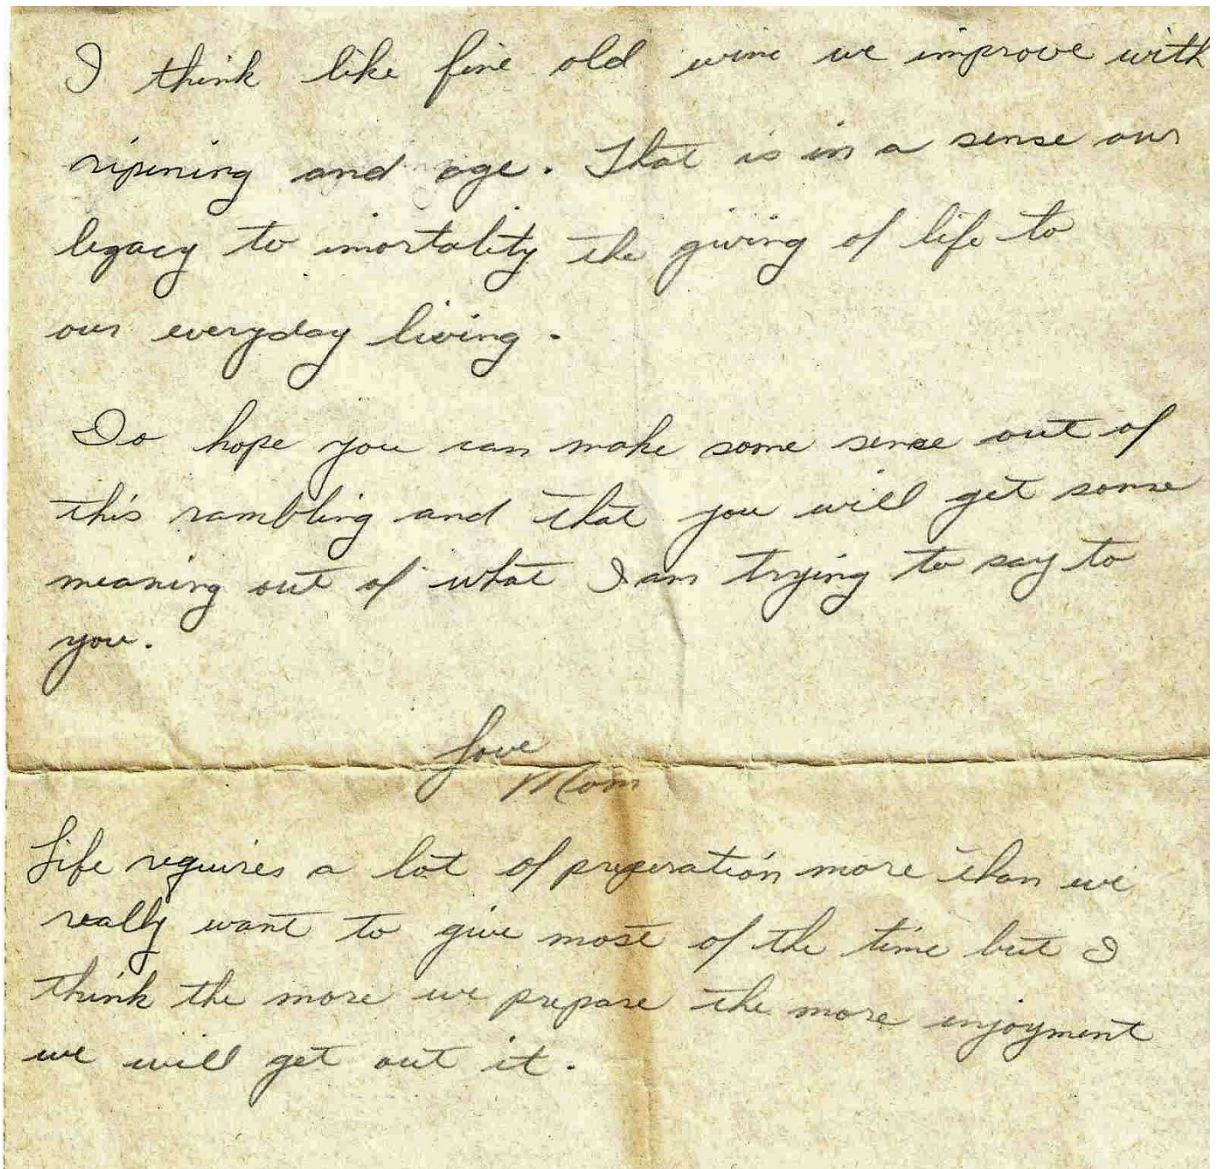 I think like fine old wine we improve with
ripining and age. That is in a sense our
legacy to imortality the giving of life to
our everyday living.
Do hope you can make some sense out of
this rambling and that you will get some
meaning out of what I am trying to say to
you.
Love
Mom
Life requires a lot of preperation more than we
really want to give most of the time but I
think the more we prepare the more injoyment
we will get out it.